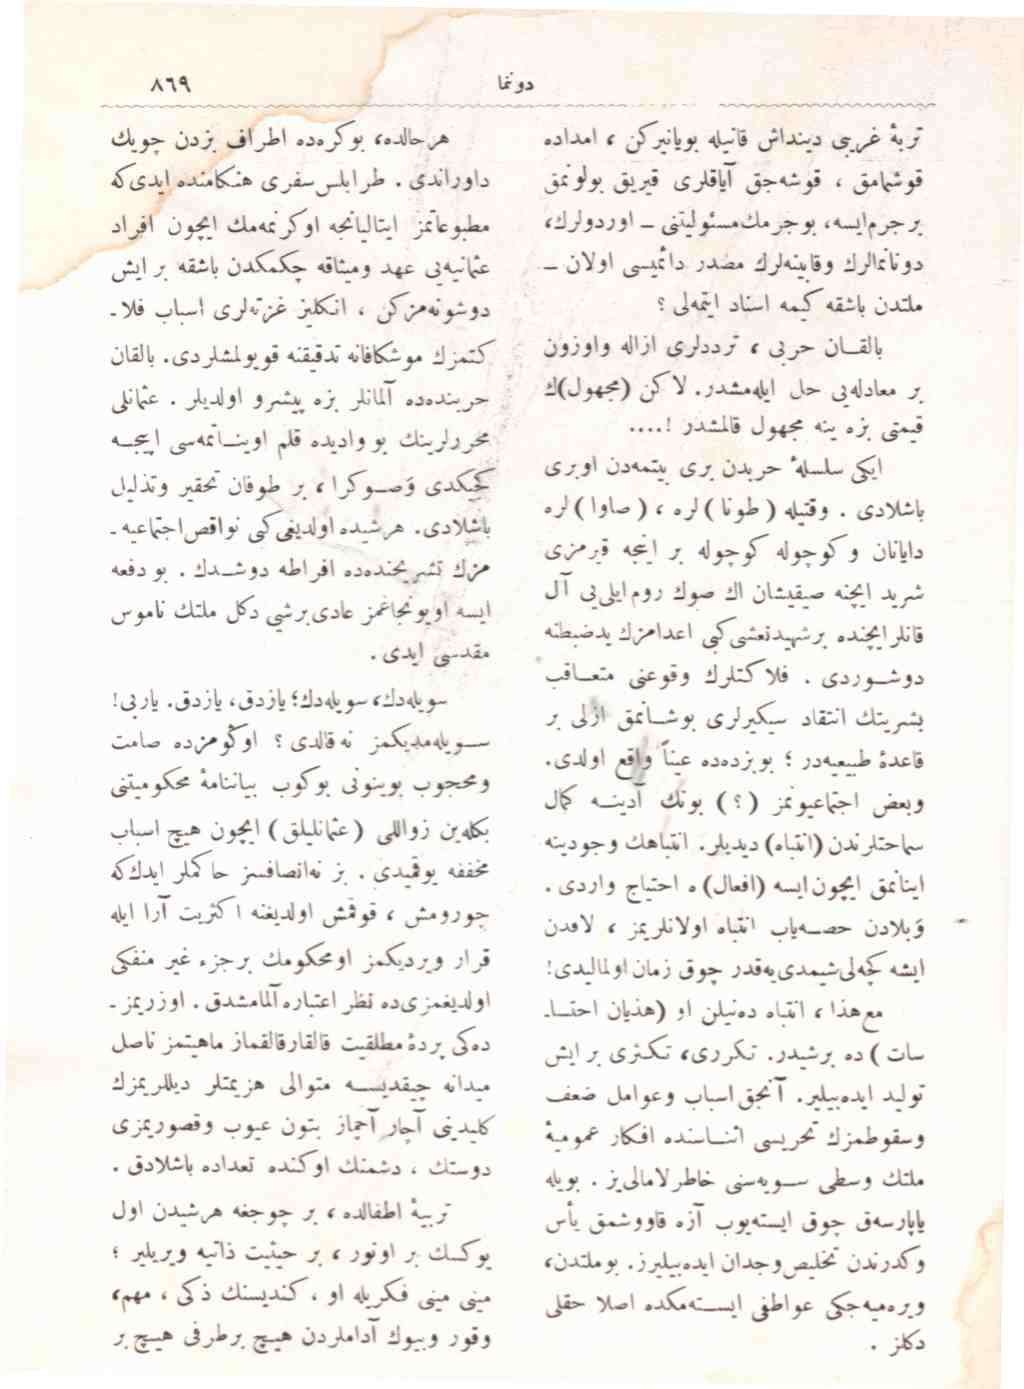 دونما
٨٦٩
تربهٔ غریبی دینداش قانیله بویانیرکن ، امداده
قوشمامق ، قوشه‌جق آیاقلری قیریق بولونمق
برجرم‌ایسه، بوجرمك‌مسئولیتنی ــ اوردولرك،
دونانمالرك وقابینه‌لرك مصدر دائمیسی اولان ــ
ملتدن باشقه کیمه اسناد ایتمه‌لی ؟
بالقـان حربی ، ترددلری ازاله واوزون
بر معادله‌یی حل ایله‌مشدر. لاکن (مجهول)ك
قیمتی بزه ینه مجهول قالمشدر !....
ایکی سلسلهٔ حربدن بری بیتمه‌دن اوبری
باشلادی . وقتیله (طونا) لره ، (صاوا) لره
دایانان و کوچوله کوچوله بر اینجه قیرمزی
شرید ایچنه صیقیشان اك صوك روم‌ایلی‌یی آل
قانلرایچنده برشهیدنعشی‌کبی اعدامزك یدضبطنه
دوشـوردی . فلاکتلرك وقوعنی متعـاقب
بشریتك انتقاد سیکیرلری بوشـانمق ازلی بر
قاعدهٔ طبیعیه‌در ؛ بوبزده‌ده عیناً واقع اولدی.
وبعض اجتماعیونمز (؟) بونك آدینـه کمال
سماحتلرندن (انتباه) دیدیلر. انتباهك وجودینه
اینانمق ایچون‌ایسه (افعال) ه احتیاج واردی.
وَبلادن حصـه‌یاب انتباه اولانلریمز ، لافدن
ایشه کچه‌لی‌شیمدی‌یه‌قدر چوق زمان اولمالیدی!
مع‌هذا ، انتباه ده‌نیلن او (هذیان احتسا-
سات) ده برشیدر. تکرری، تکثری بر ایش
تولید ایده‌بیلیر. آنجق اسباب وعوامل ضعف
وسقوطمزك تحریسی اثنـاسنده افکار عمومیهٔ
ملتك وسطی سـویه‌سنی خاطرلامالی‌یز . بویله
یاپارسه‌ق چوق ایسته‌یوب آزه قاووشمق یأس
وکدرندن تخلیص‌وجدان ایده‌بیلیرز. بوملتدن،
ویره‌میه‌جکی عواطفی ایستـه‌مکده اصلا حقلی
دکلز .
هرحالده، بوکره‌ده اطراف بزدن چویك
داوراندی . طرابلس‌سفری هنکامنده ایدی‌که
مطبوعاتمز ایتالیانجه اوکرنمه‌مك ایچون افراد
عثمانیه‌یی عهد ومیثاقه چکمکدن باشقه بر ایش
دوشونه‌مزکن ، انکلیز غزته‌لری اسباب فلا-
کتمزك موشکافانه تدقیقنه قویولمشلردی. بالقان
حربنده‌ده آلمانلر بزه پیشرو اولدیلر . عثمانلی
محررلرینك بو وادیده قلم اوینـاتمه‌سی اپیجـه
کجیکدی وَصـوکرا ، بر طوفان تحقیر وتذلیل
باشلادی. هرشیده اولدیغی‌کبی نواقص‌اجتماعیه-
مزك تشریحنده‌ده افراطه دوشـدك . بو دفعه
ایسه اویونجاغمز عادی‌برشیی دکل ملتك ناموس
مقدسی ایدی.
سویله‌دك، سویله‌دك؛ یازدق، یازدق. یاربی!
سـویله‌مدیکمز نه قالدی ؟ اوکومزده صامت
ومحجوب بوینونی بوکوب بیاننامهٔ محکومیتنی
بکله‌ین زواللی (عثمانلیلق) ایچون هیچ اسباب
مخففه یوقمیدی. بز نه‌انصافسز حاکملر ایدك‌که
چورومش ، قوقمش اولدیغنه اکثریت آرا ایله
قرار ویردیکمز اومحکومك برجزء غیر منفکی
اولدیغمزی‌ده نظر اعتباره آلمامشدق . اوزریمز-
ده‌کی پردهٔ مطلقیت قالقارقالقماز ماهیتمز ناصل
میدانه چیقدیسـه متوالی هزیمتلر دیللریمزك
کلیدینی آچار آچماز بتون عیوب وقصوریمزی
دوستك ، دشمنك اوکنده تعداده باشلادق .
تربیهٔ اطفالده ، بر چوجغه هرشیدن اول
یوکسك بر اونور ، بر حیثیت ذاتیه ویریلیر ؛
مینی مینی فکریله او ، کندیسنك ذکی ، مهم،
وقور وبیوك آداملردن هیـچ برطرفی هیـچ بر